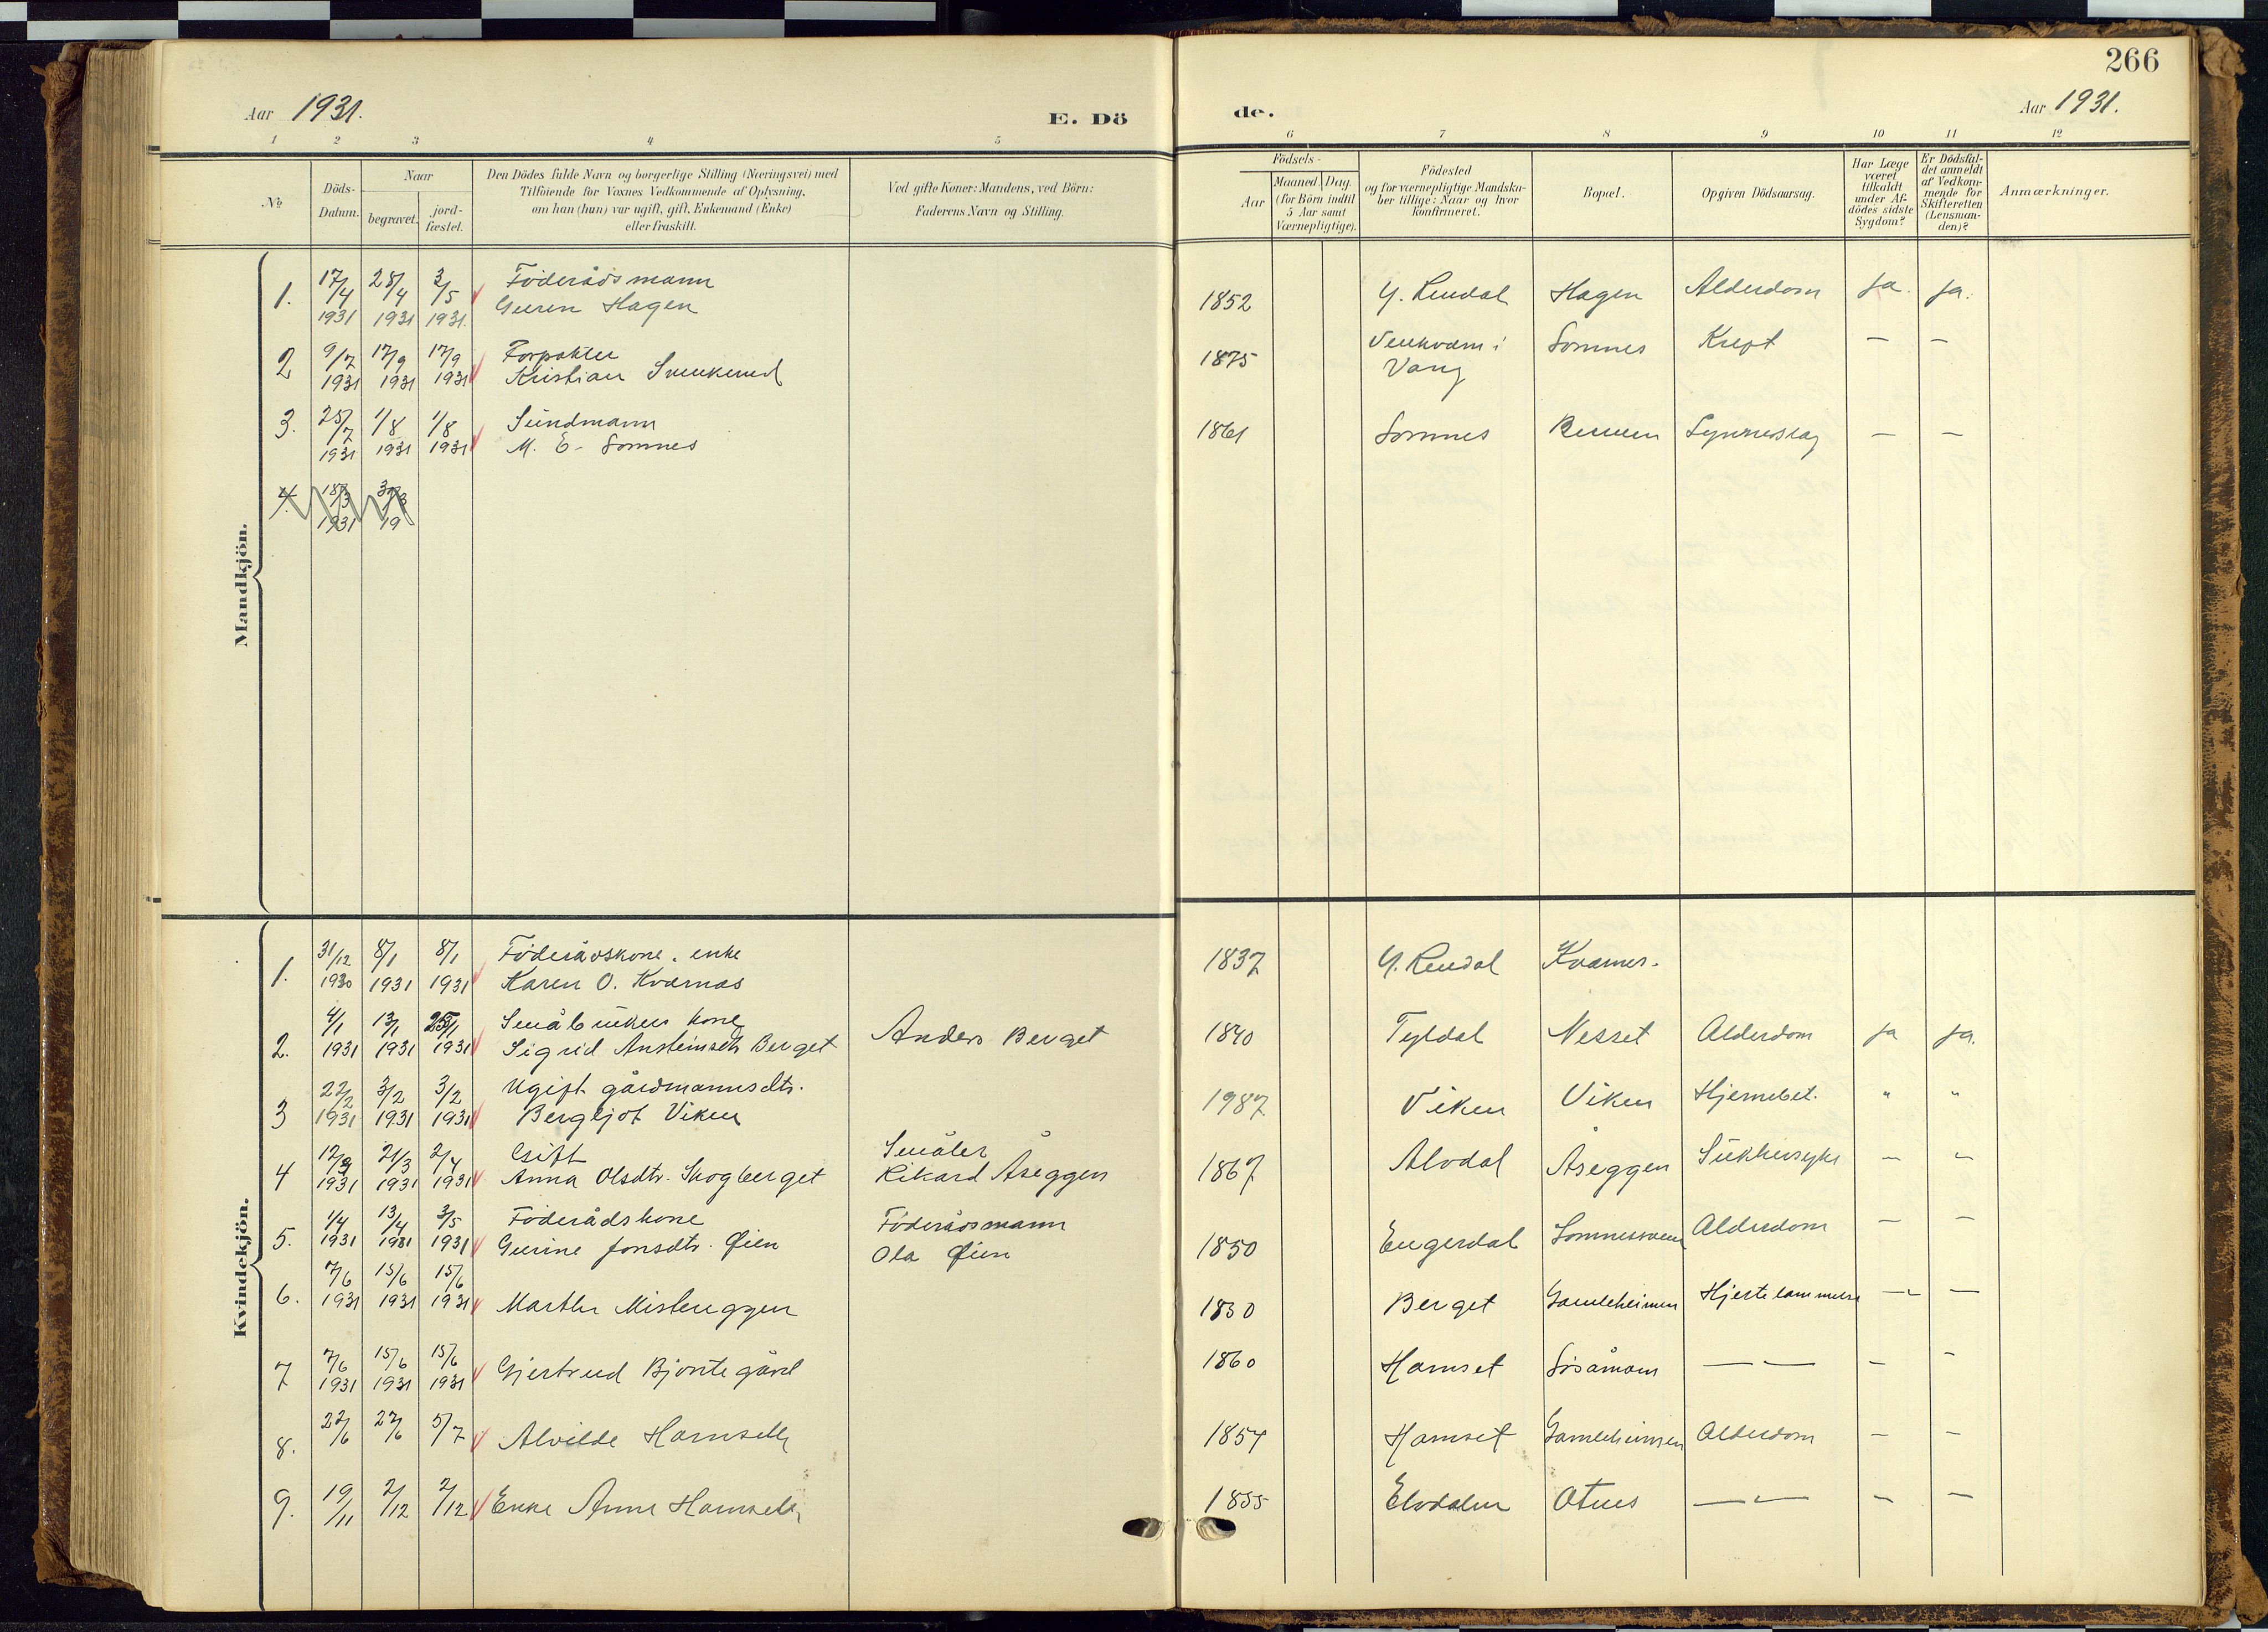 266
Aar 1931.
E. Dö
de.
Aar 1931.
1 2 3 4 5 6 7 8 9 10 11 12
No
Döds-
Datum.
Naar
begravet.
jord-
fæstet.
Den Dödes fulde Navn og borgerlige Stilling (Næringsvei) med
Tilföiende for Voxnes Vedkommende af Oplysning,
om han (hun) var ugift, gift, Enkemand (Enke)
eller fraskilt.
Ved gifte Koner: Mandens, ved Börn:
Faderens Navn og Stilling.
Födsels-
Aar
Maaned. Dag.
(for Börn indtil
5 Aar samt
Værnepligtige).
Födested
og for værnepligtige Mandska-
ber tillige: Naar og hvor
konfirmeret.
Bopæl.
Opgiven Dödsaarsag.
Har Læge
været
tilkaldt
under Af-
dödes sidste
Sygdom?
Er Dödsfal-
det anmeldt
af Vedkom-
mende for
Skifteretten
(Lensman-
den)?
Anmærkninger.
Mandkjön.
1. 17/4 28/4 3/5 Föderådsmann
1931 1931 1931. Hagen 1852 Y. Rendal Hagen Alderdom Ja. Ja.
2 9/7 17/9 17/9 Forpakter
1931 1931 1931 Kristian 1875 i Vang Lomnes Kreft — —
3. 25/7 1/8 1/8
1931 1931 1931 M. E. Lomnes 1861 Lomnes — —
4. 18/3
1931 19
Kvindekjön.
1. 31/12 8/1 8/1 Föderådskone, enke
1930 1931 1931 Karen O. Kværnæs 1837 Y. Rendal
2. 4/1 13/1 25/1 Småbrukers kone
1931 1931 1931 Sigrid Berget Anders Berget 1840 Tyldal Nesset Alderdom ja ja.
3 22/2 3/2 3/2 Ugift gårdmannsdtr.
1931 1931 1931 Bergljot Viken 1987 Viken Viken Hjernebet. " "
4 21/3 2/4 Gift
1931 1931 1931 Anna Olsdtr. Skogberget Rikard Åseggen 1867 Alvdal Åseggen Sukkersyke — —
5. 1/4 13/4 3/5 Föderådskone Föderådsmann
1931 1931 1931 Gurine Jonsdtr. Øien Ola Øien 1850 Engerdal Alderdom — —
6. 7/6 15/6 15/6
1931 1931 1931 Marthe Mistereggen 1850 Berget Gamleheimen Hjertelammelse — —
7 7/6 15/6 15/6
1931 1931 1931 Gjertrud Bjontegård 1860 Hornset — — — —
8. 22/6 27/6 5/7 Alvilde Hornseth 1854 Hornset Gamleheimen Alderdom — —
9. 19/11 2/12 2/12 Enke Anne Hornseth 1855 Elvdalen Otnes — — — —